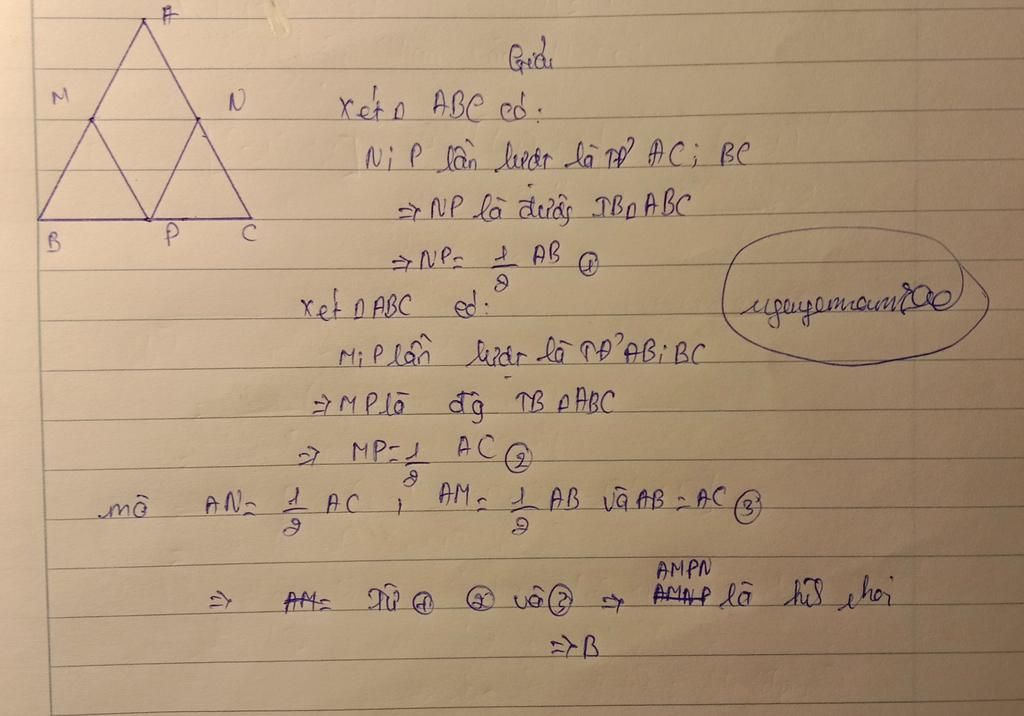 A
M
N
B
P
C
Giải
Xét Δ ABC có:
N; P lần lượt là TĐ' AC; BC
⇒ NP là đường TB Δ ABC
⇒ NP = 1/2 AB ①
Xét Δ ABC có:
M; P lần lượt là TĐ' AB; BC
⇒ MP là đg TB Δ ABC
⇒ MP = 1/2 AC ②
mà AN = 1/2 AC ; AM = 1/2 AB và AB = AC ③
⇒ AM= Từ ① ② và ③ ⇒ AMNP AMPN là thoi
⇒ B